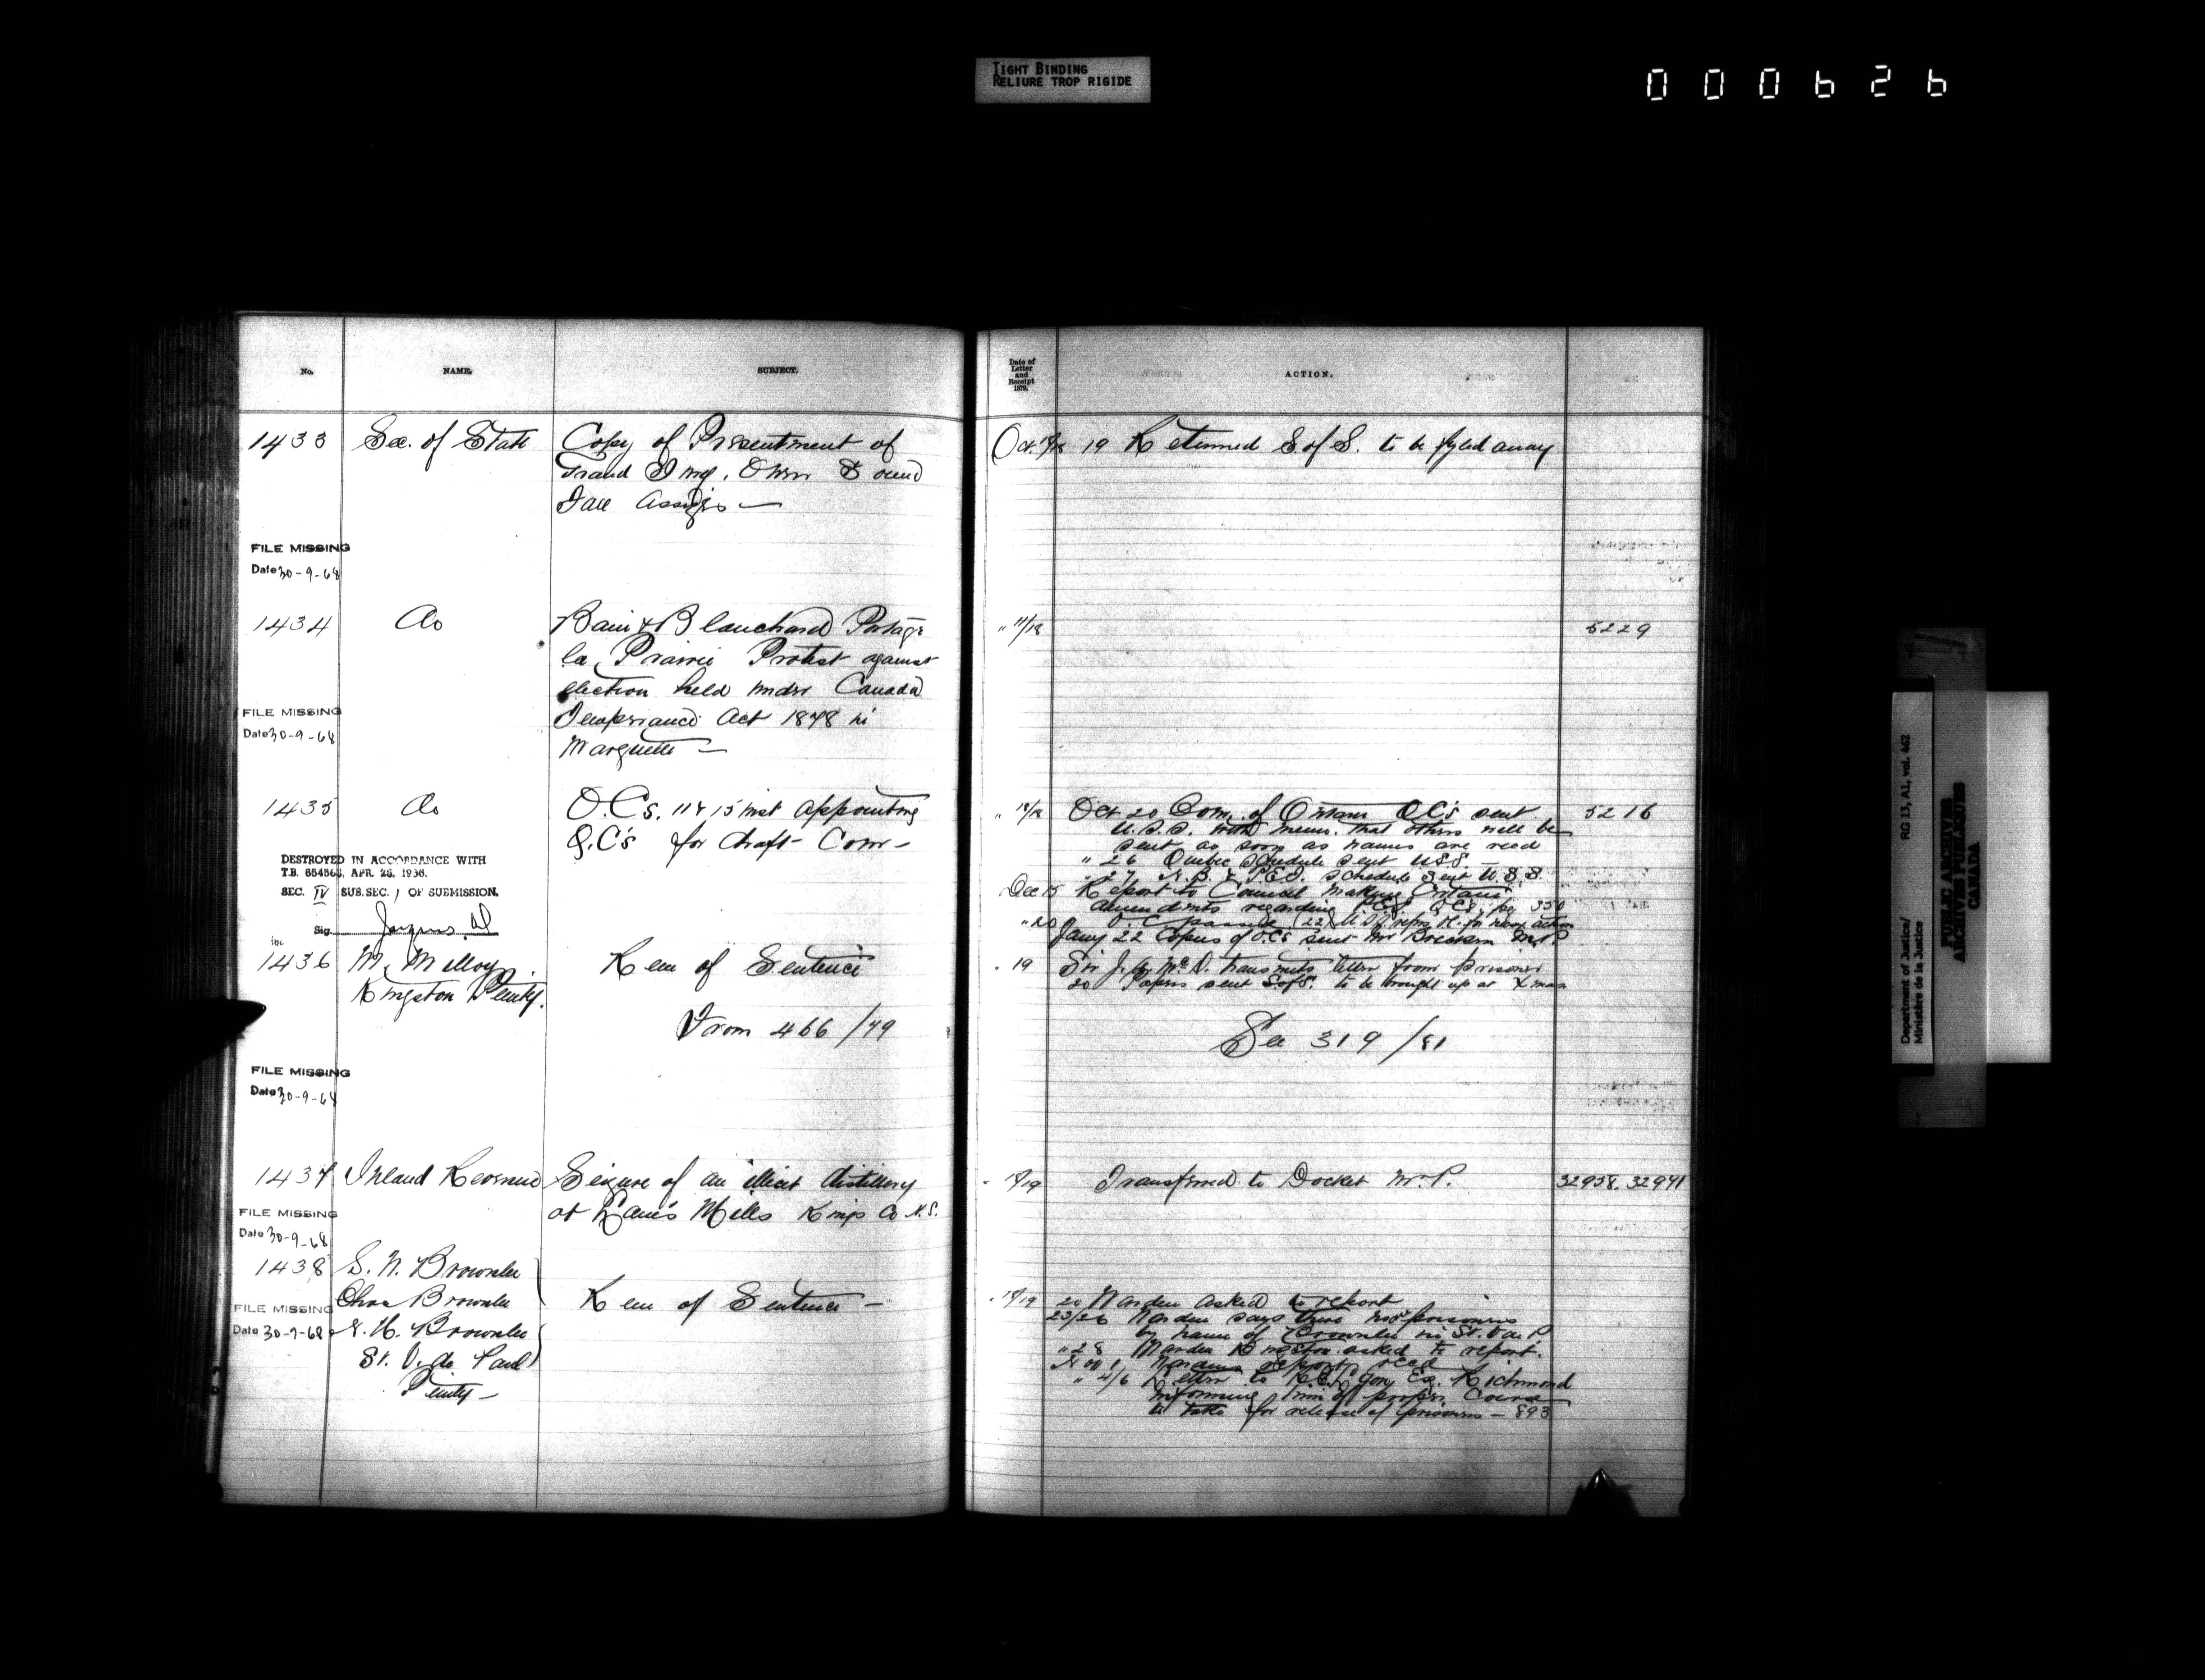 TIGHT BINDING
RELIURE TROP RIGIDE
000626
No.
NAME.
SUBJECT.
1433 Sec. of State Copy of Presentment of
Grand Jury, Owen Sound
Fall Assizes —
FILE MISSING
Date 30-9-68
1434 Do Bain & Blanchard Portage
la Prairie Protest against
election held under Canada
Temperance Act 1878 in
Marquette —
FILE MISSING
Date 30-9-68
1435 Do O.Cs. 11 & 15 inst appointing
Q.C's for draft Com —
DESTROYED IN ACCORDANCE WITH
T.B. 654563, APR. 28, 1936.
SEC. IV SUB.SEC. 1 OF SUBMISSION.
Sig.
1436 M. Milloy Rem of Sentence
Kingston Penity.
From 466/79
FILE MISSING
Date 30-9-68
1437 Inland Revenue Seizure of an illicit distillery
at Mills Kings Co N.S.
FILE MISSING
Date 30-9-68
1438 S. N. Brownlee
Chas Brownlee Rem of Sentence —
FILE MISSING
Date 30-9-68 H. Brownlee
St. V. de Paul
Penity —
Date of
Letter
and
Receipt
1879.
ACTION.
Oct. 19 Returned S. of S. to be fyled away
" 11/18 5229
" 18/18 Oct 20 Com. of Ontario QC's sent 5216
U.S.S. with memo. that others will be
sent as soon as names are recd
" 26 Quebec schedule sent USS. —
" 27 N.B. & P.E.I. schedule sent U.S.S.
Dec 15 Report to Council making certain
amendments regarding P.E.I. QCs pg. 350
" 20 O.C. passed (22)
Jany 22 Copies of O.Cs sent Mr Brecken M.P.
" 19 Sir J. A. McD. transmits letter from prisoner
20 Papers sent S of S. to be brought up at Xmas
See 319/81
" 18/19 Transferred to Docket M.P. 32958. 32941
" 18/19 20 Warden asked to report
25/26 Warden says there no prisoners
by name of Brownlee in St. V de P
" 28 Warden Kingston asked to report.
Nov 1 Wardens report recd
" 4/6 Letter to Esq. Richmond
informing him of proper course
to take for release of prisoners — 893
Department of Justice/
Ministère de la Justice
RG 13, A1, vol. 462
PUBLIC ARCHIVES
ARCHIVES PUBLIQUES
CANADA